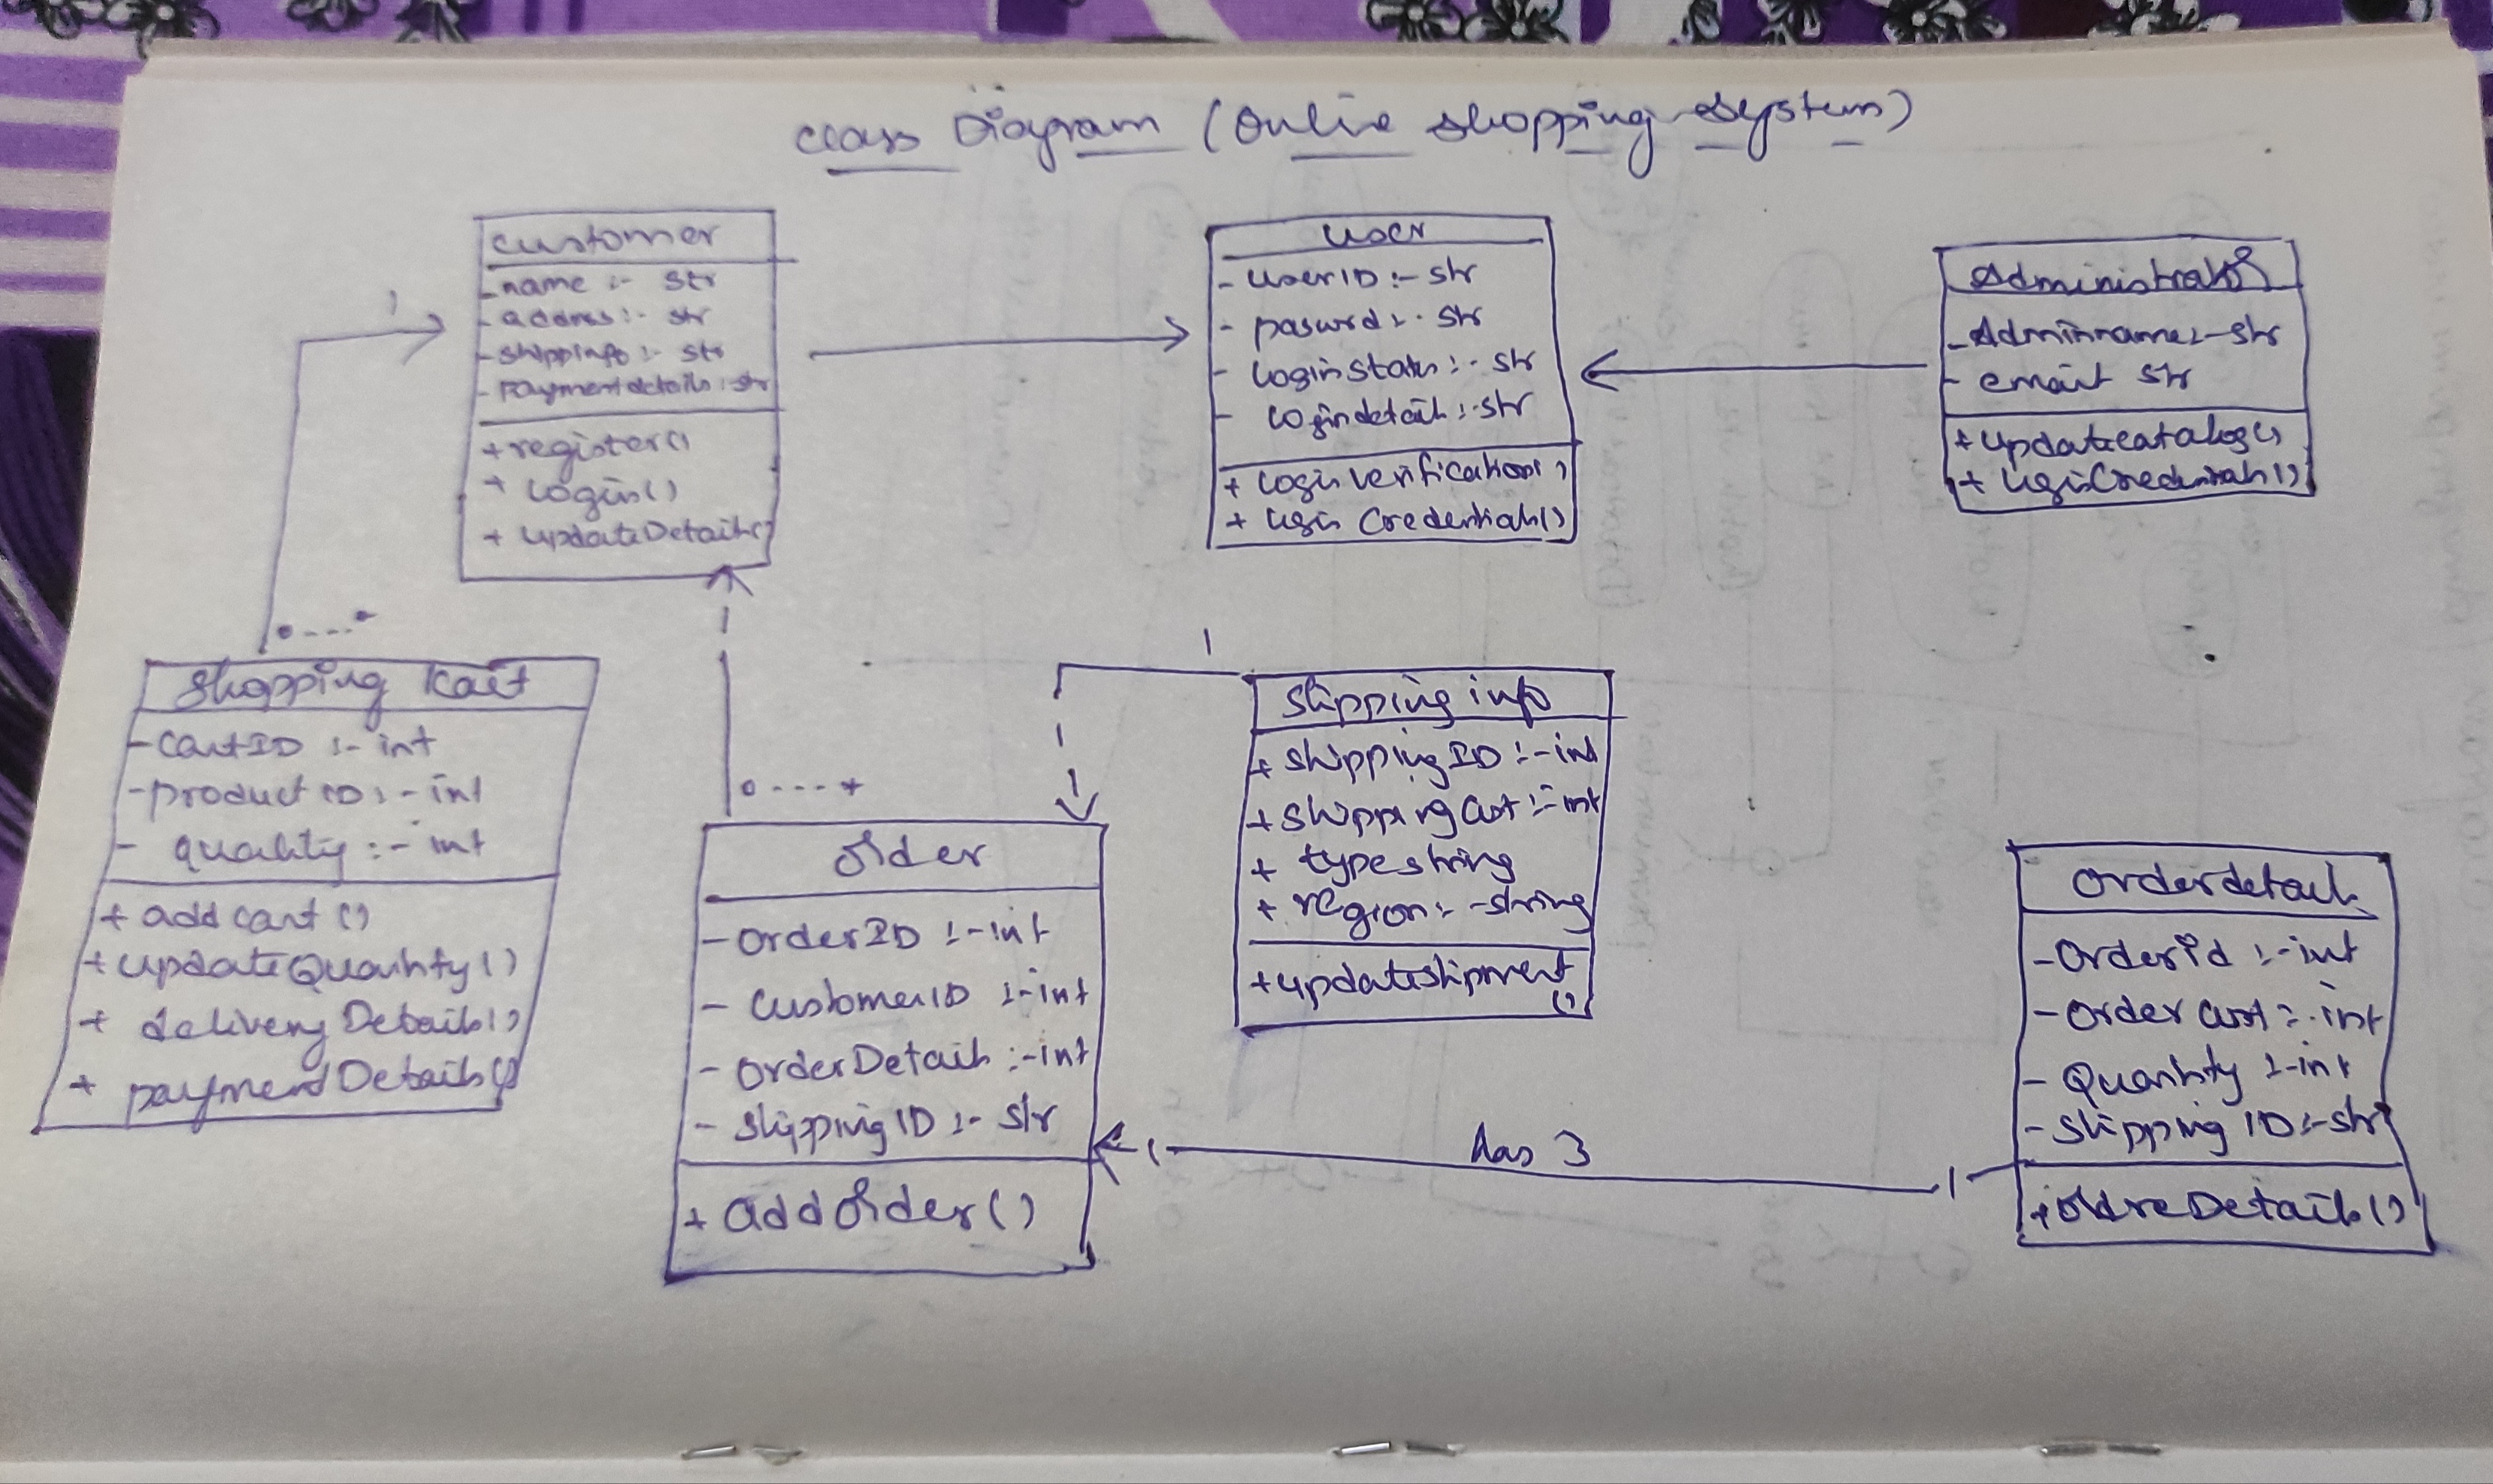 class Diagram (Online Shopping System)
customer
- name :- str
- address :- str
- shippinfo :- str
- paymentdetails : str
+ register()
+ login()
+ updateDetails()
user
- userID :- str
- pasword :- str
- loginStatus :- str
- logindetails :- str
+ loginverification()
+ login Credentials()
Administrator
- Adminname :- str
- email str
+ updatecatalog()
+ loginCredentials()
1
0....*
Shopping Cart
- CartID :- int
- product ID :- int
- quality :- int
+ add cart ()
+ updateQuantity()
+ delivery Details()
+ payment Details()
1
0....*
order
- orderID :- int
- customerID :- int
- orderDetails :- int
- shipping ID :- str
+ addorder()
1
1
Shipping info
+ shippingID :- int
+ shipping Cost :- int
+ type string
+ region :- string
+ updateshipment
()
1
has 3
1
orderdetails
- orderid :- int
- order cost :- int
- Quantity :- int
- shipping ID :- str
+ ordreDetails()